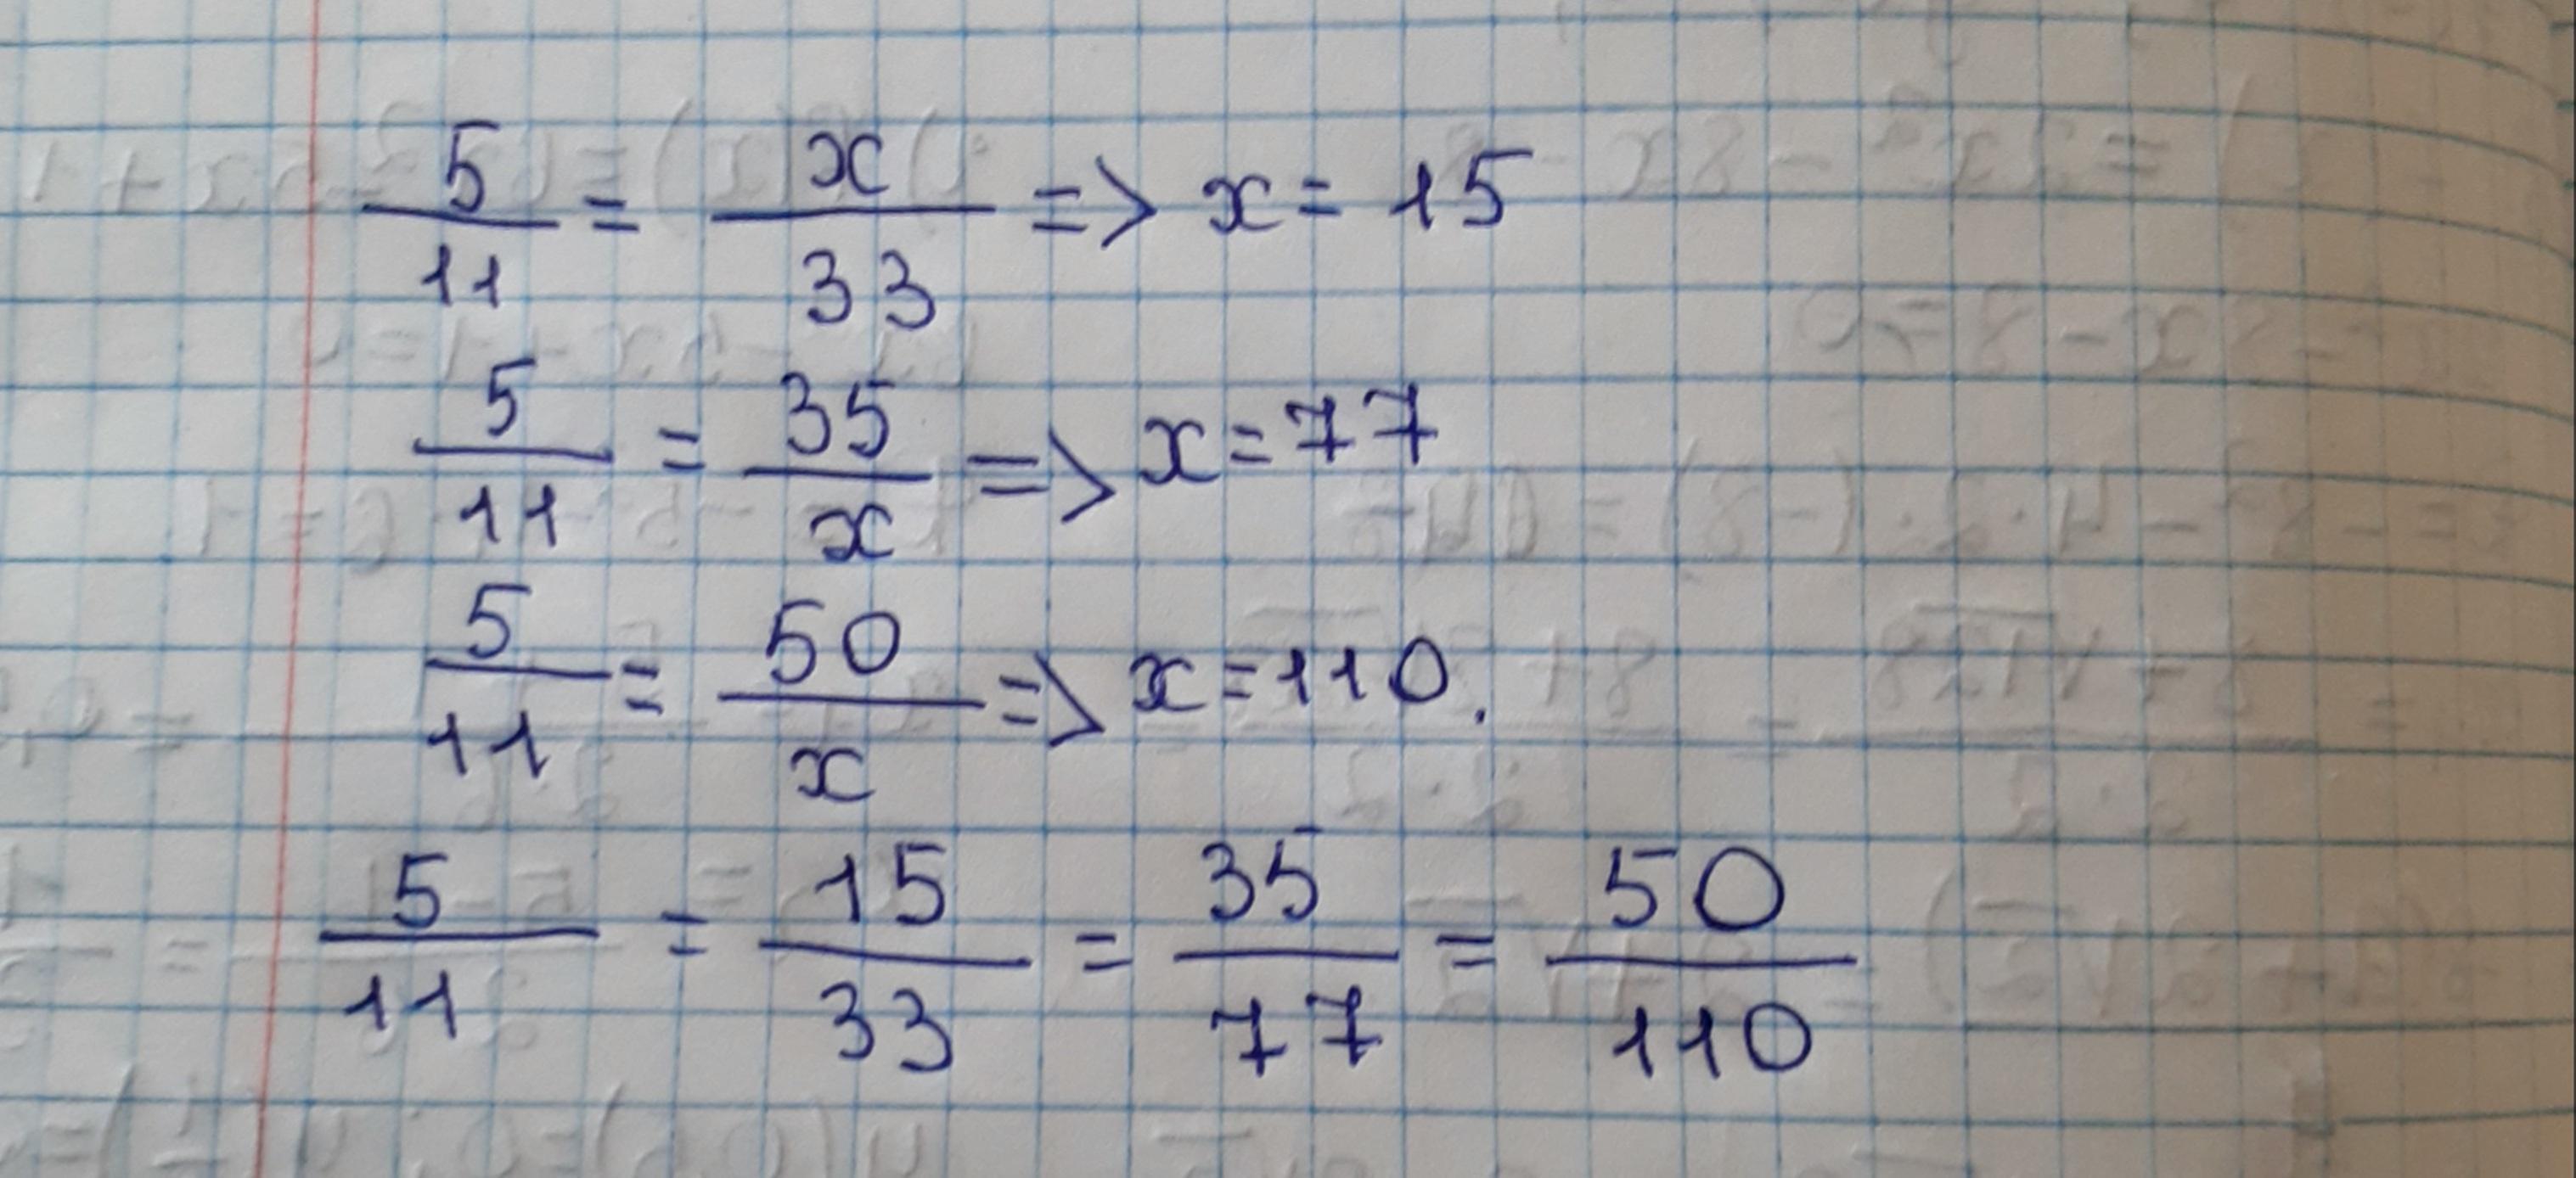 5/11 = x/33 => x = 15
5/11 = 35/x => x = 77
5/11 = 50/x => x = 110.
5/11 = 15/33 = 35/77 = 50/110